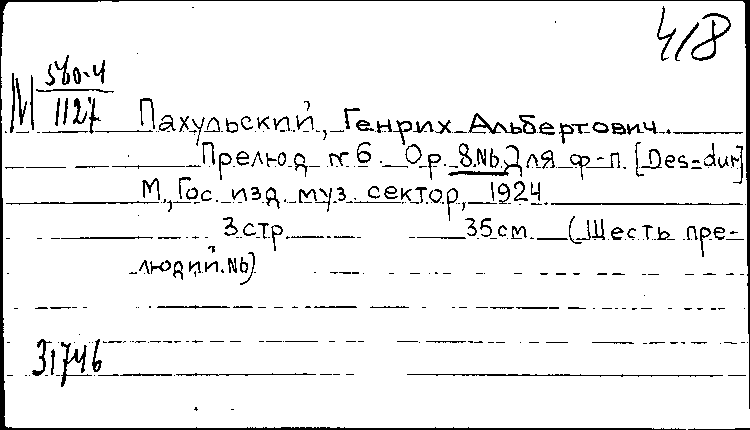 418
М 560-4
1127
Пахульский, Генрих Альбертович.
Прелюд №6. Op. 8.N6. Для ф-п. [Des=dur]
М., Гос. изд. муз. сектор, 1924
3 стр. 35 см (Шесть пре-
людий. N6)
31746